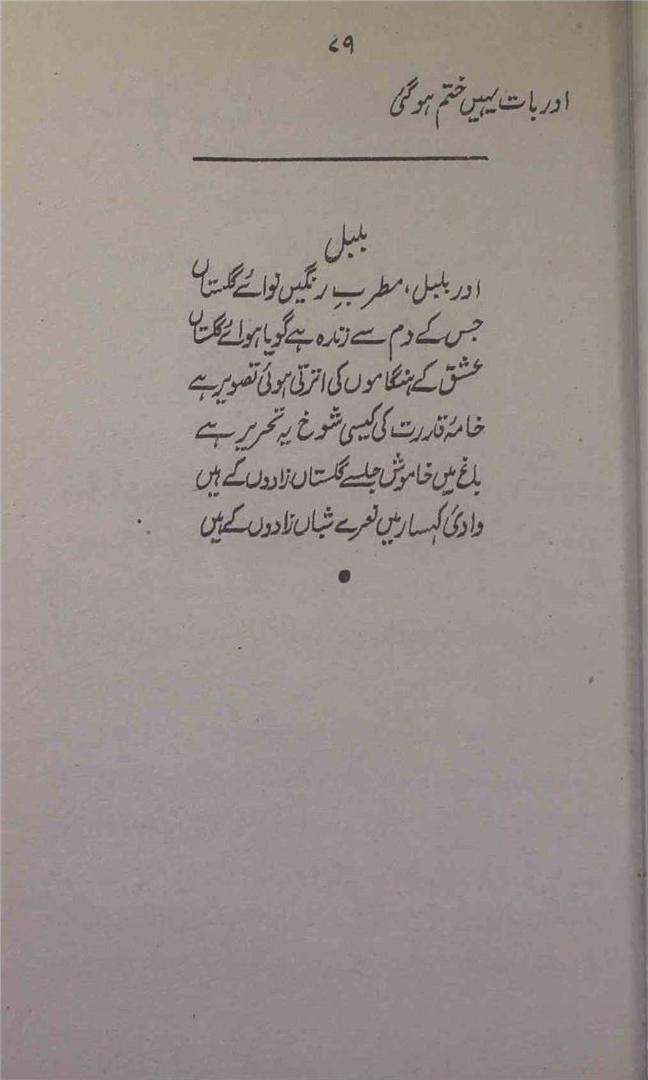 ۷۹
اور بات یہیں ختم ہو گئی
بلبل
اور بلبل، مطربِ رنگیں نوائے گلستاں
جس کے دم سے زندہ ہے گویا ہوائے گلستاں
عشق کے ہنگاموں کی اترتی ہوئی تصویر ہے
خامۂ قدرت کی کیسی شوخ یہ تحریر ہے
باغ میں خاموش جلسے گلستاں زادوں کے ہیں
وادیٔ کہسار میں نعرے شباں زادوں کے ہیں